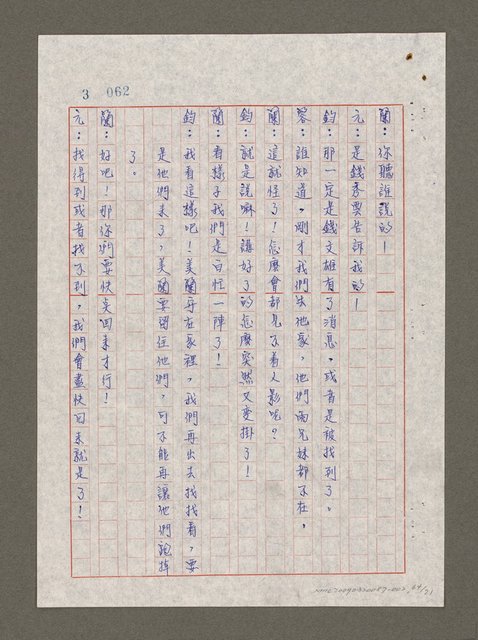 3 062
蘭：你聽誰說的！
元：是錢秀雯告訴我的！
鈞：那一定是錢文雄有了消息，或者是被找到了。
蓉：誰知道，剛才我們去他家，他們兩兄妹都不在，
蘭：這就怪了！怎麼會都見不着人影呢？
鈞：就是說嘛！講好了的怎麼突然又變掛了！
蘭：看樣子我們是白忙一陣了！
鈞：我看這樣吧！美蘭再在家裡，我們再出去找找看，要
是他們來了，美蘭要留住他們，可不能再讓他們跑掉
了。
蘭：好吧！那你們要快去回來才行！
元：找得到或者找不到，我們會盡快回來就是了！